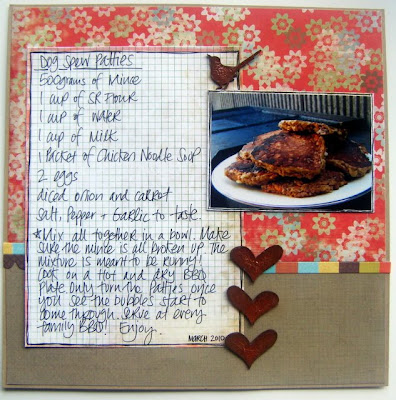 Dog Spew Patties
500grams of Mince
1 cup of SR Flour
1 cup of water
1 cup of Milk
1 Packet of Chicken Noodle Soup
2 eggs
diced onion and carrot
Salt, Pepper + Garlic to taste.
*Mix all together in a bowl. Make
sure the mince is all broken up. The
mixture is meant to be runny!
Cook on a Hot and dry BBQ
Plate. Only turn the Patties once
you see the bubbles start to
come through. Serve at every
family BBQ! Enjoy.
MARCH 2010